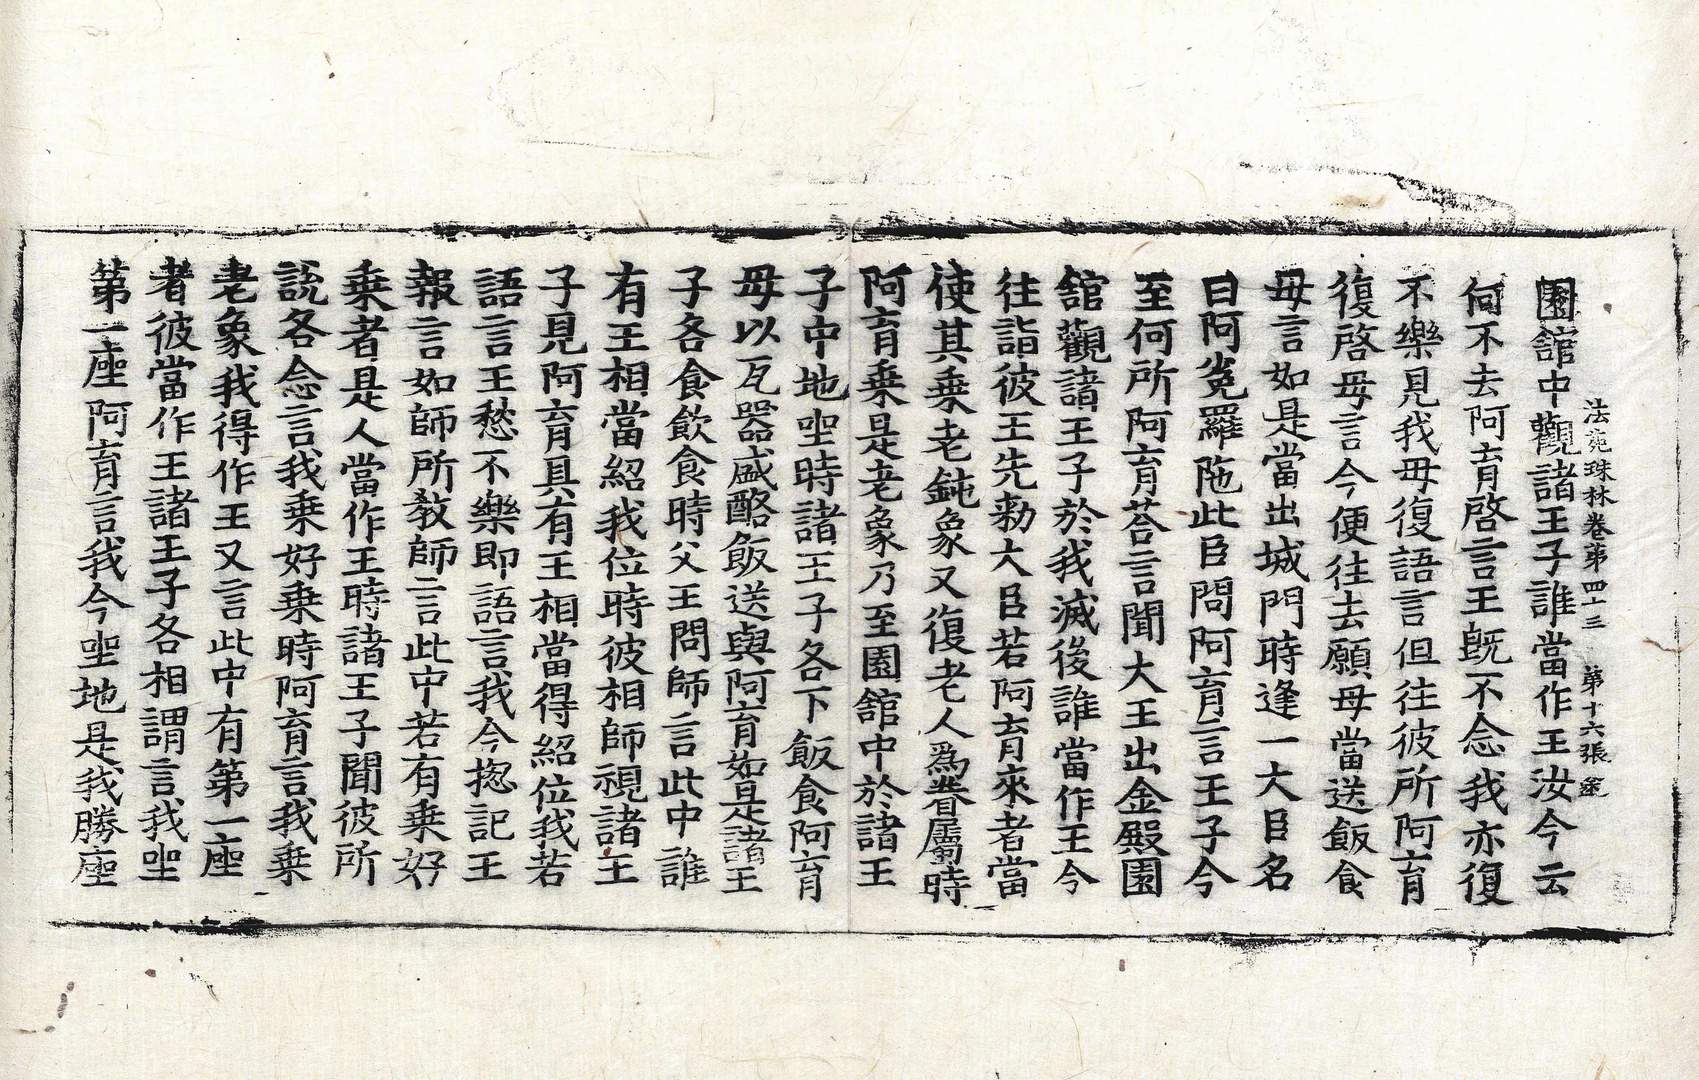 法苑珠林卷第四十三 第十六張 󠄀
園舘中觀諸王子誰當作王汝今云
何不去阿育啓言王旣不念我亦復
不樂見我母復語言但往彼所阿育
復啓母言今便往去願母當送飯食
母言如是當出城門時逢一大臣名
曰阿㝹羅陁此臣問阿育言王子今
至何所阿育荅言聞大王出金殿園
舘觀諸王子於我滅後誰當作王今
往詣彼王先勑大臣若阿育來者當
使其乗老鈍象又復老人爲眷屬時
阿育乗是老象乃至園舘中於諸王
子中地坐時諸王子各下飯食阿育
母以瓦器盛酪飯送與阿育如是諸王
子各食飮食時父王問師言此中誰
有王相當紹我位時彼相師視諸王
子見阿育具有王相當得紹位我若
語言王愁不樂即語言我今揔記王
報言如師所敎師言此中若有乗好
乗者是人當作王時諸王子聞彼所
說各念言我乗好乗時阿育言我乗
老象我得作王又言此中有第一座
者彼當作王諸王子各相謂言我坐
第一座阿育言我今坐地是我勝座